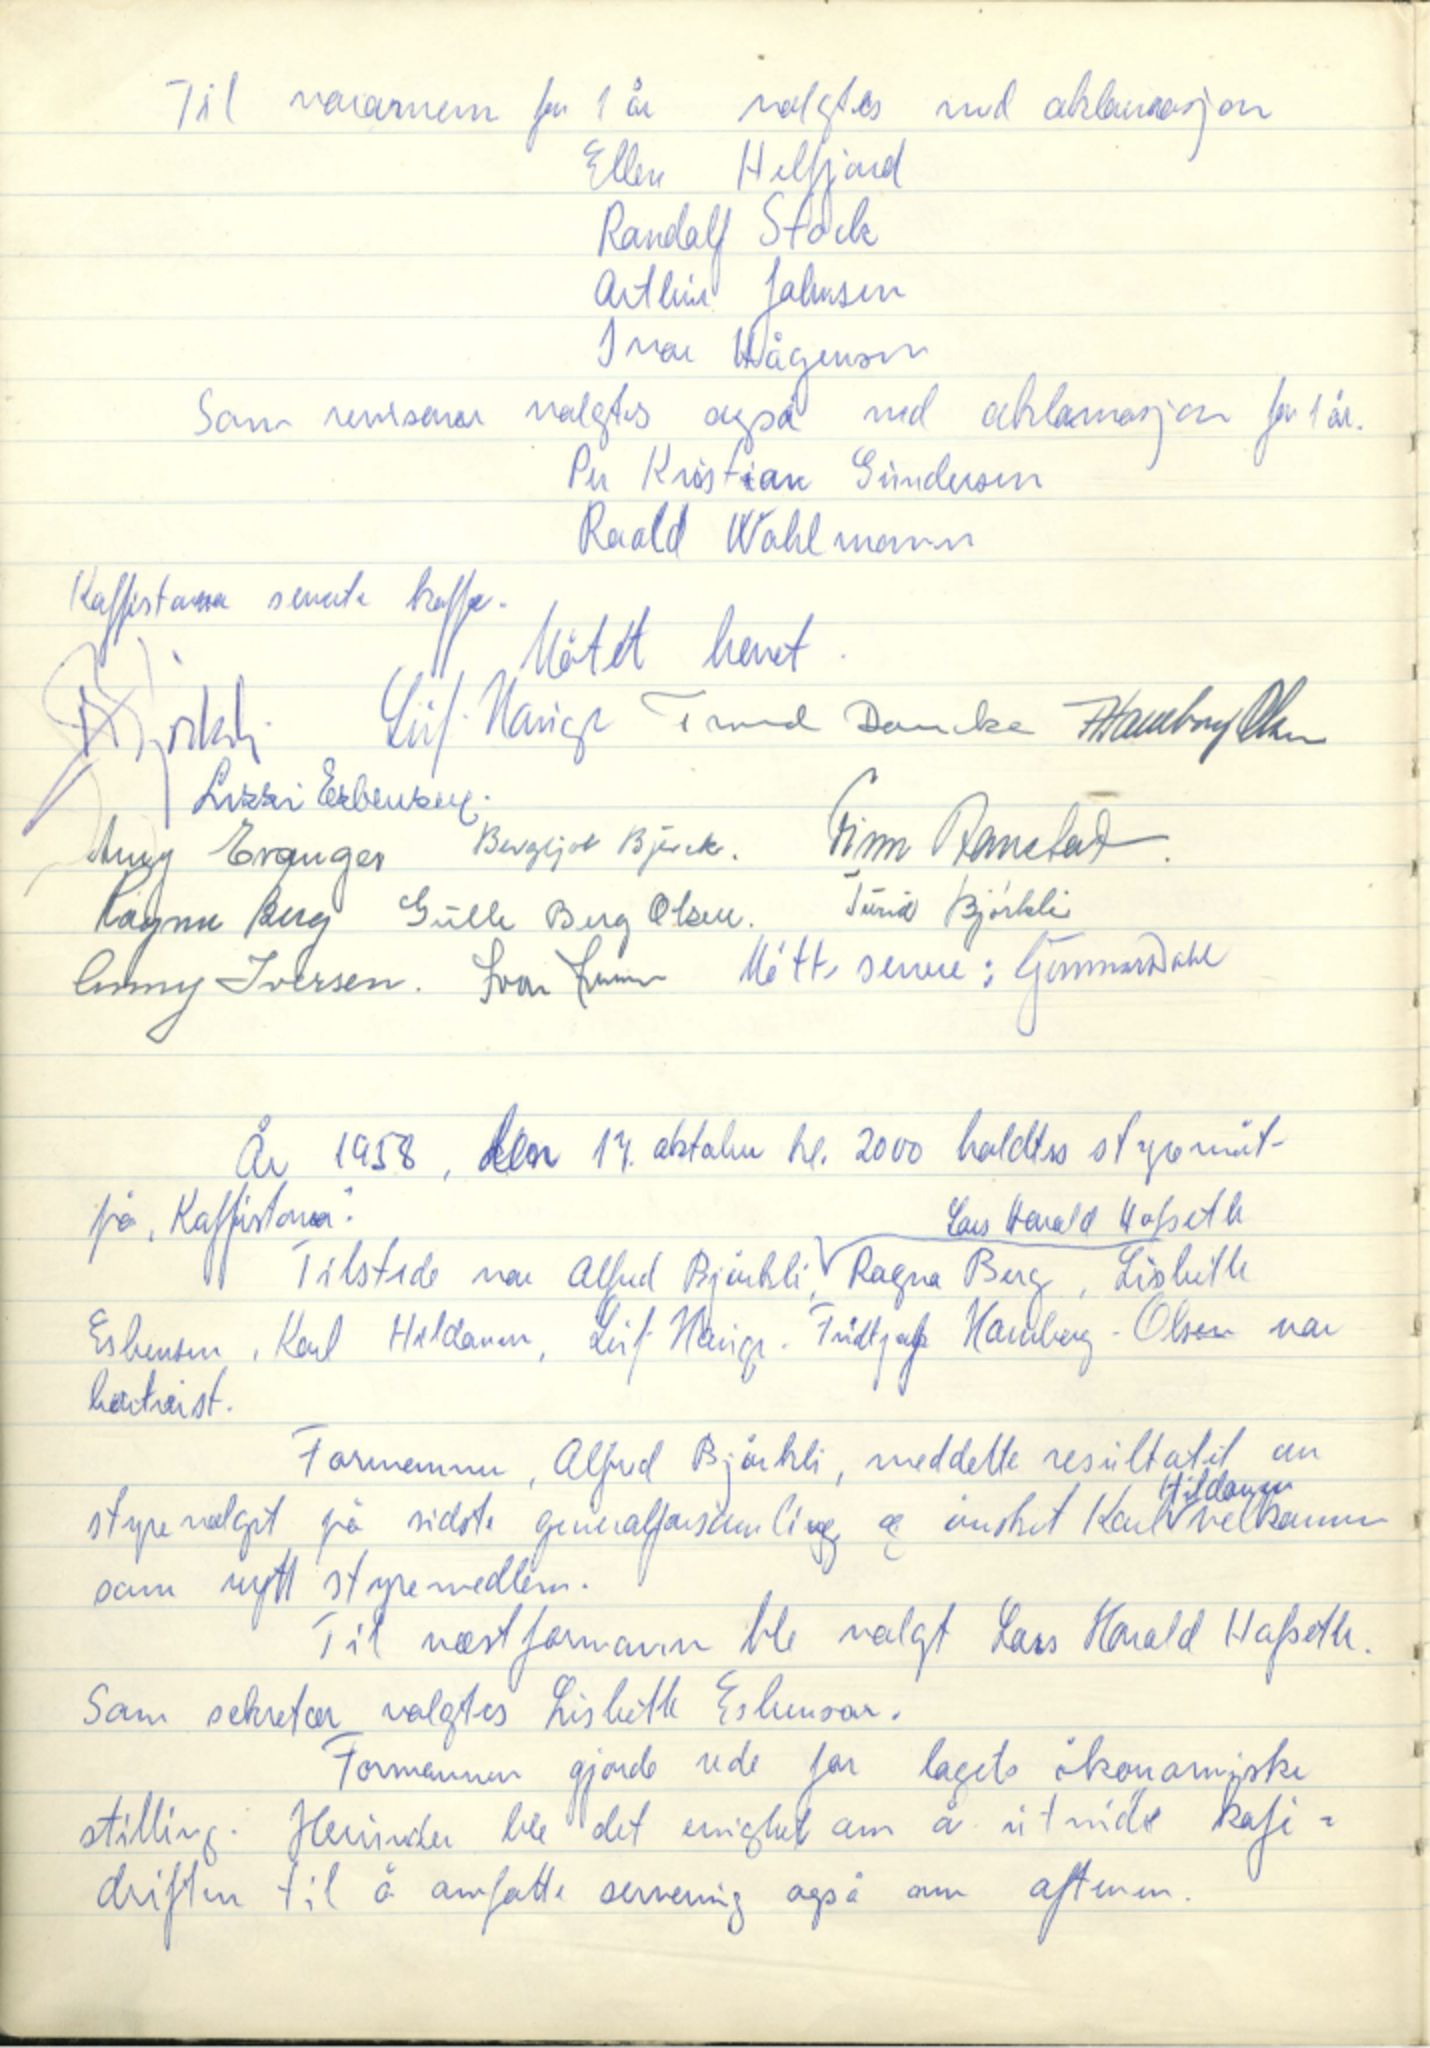 Til varamenn for 1 år valgtes med aklamasjon
Ellen Helfjord
Randolf Stock
Arthur Johnsen
Ivar Hågensen
Som revisorar valgtes også med aklamasjon for 1 år.
Per Kristian Gundersen
Roald Wahlmann
Kaffistova serverte kaffe.
Mötet hevet.
Björkli Leif Hauge Trond Dancke F Hamborg Olsen
Lizzi Esbensen.
Evanger Bergljot Bjerck. Finn Ramstad.
Ragna Berg Gulle Berg Olsen. Turid Björkli
Conny Iversen. Ivar Møtts sekre: Gunnar Dahl
År 1958, den 14. oktober kl. 2000 holdtes styremöt-
på "Kaffistova".
Lars Harald Hofseth
Tilstede var Alfred Björkli, Ragna Berg, Lisbeth
Esbensen, Karl Hildamn, Leif Hauge. Fridtjof Hamborg-Olsen var
bortreist.
Formannen, Alfred Björkli, meddelte resultatet av
Hildamn
styrevalget på sidste generalforsamling og ønsket Karl velkommen
som nytt styremedlem.
Til næstformann ble valgt Lars Harald Hofseth.
Som sekretær valgtes Lisbeth Esbensen.
Formannen gjorde rede for lagets ökonomiske
stilling. Herunder ble det enighet om å utvide kafe-
driften til å omfatte servering også om aftenen.